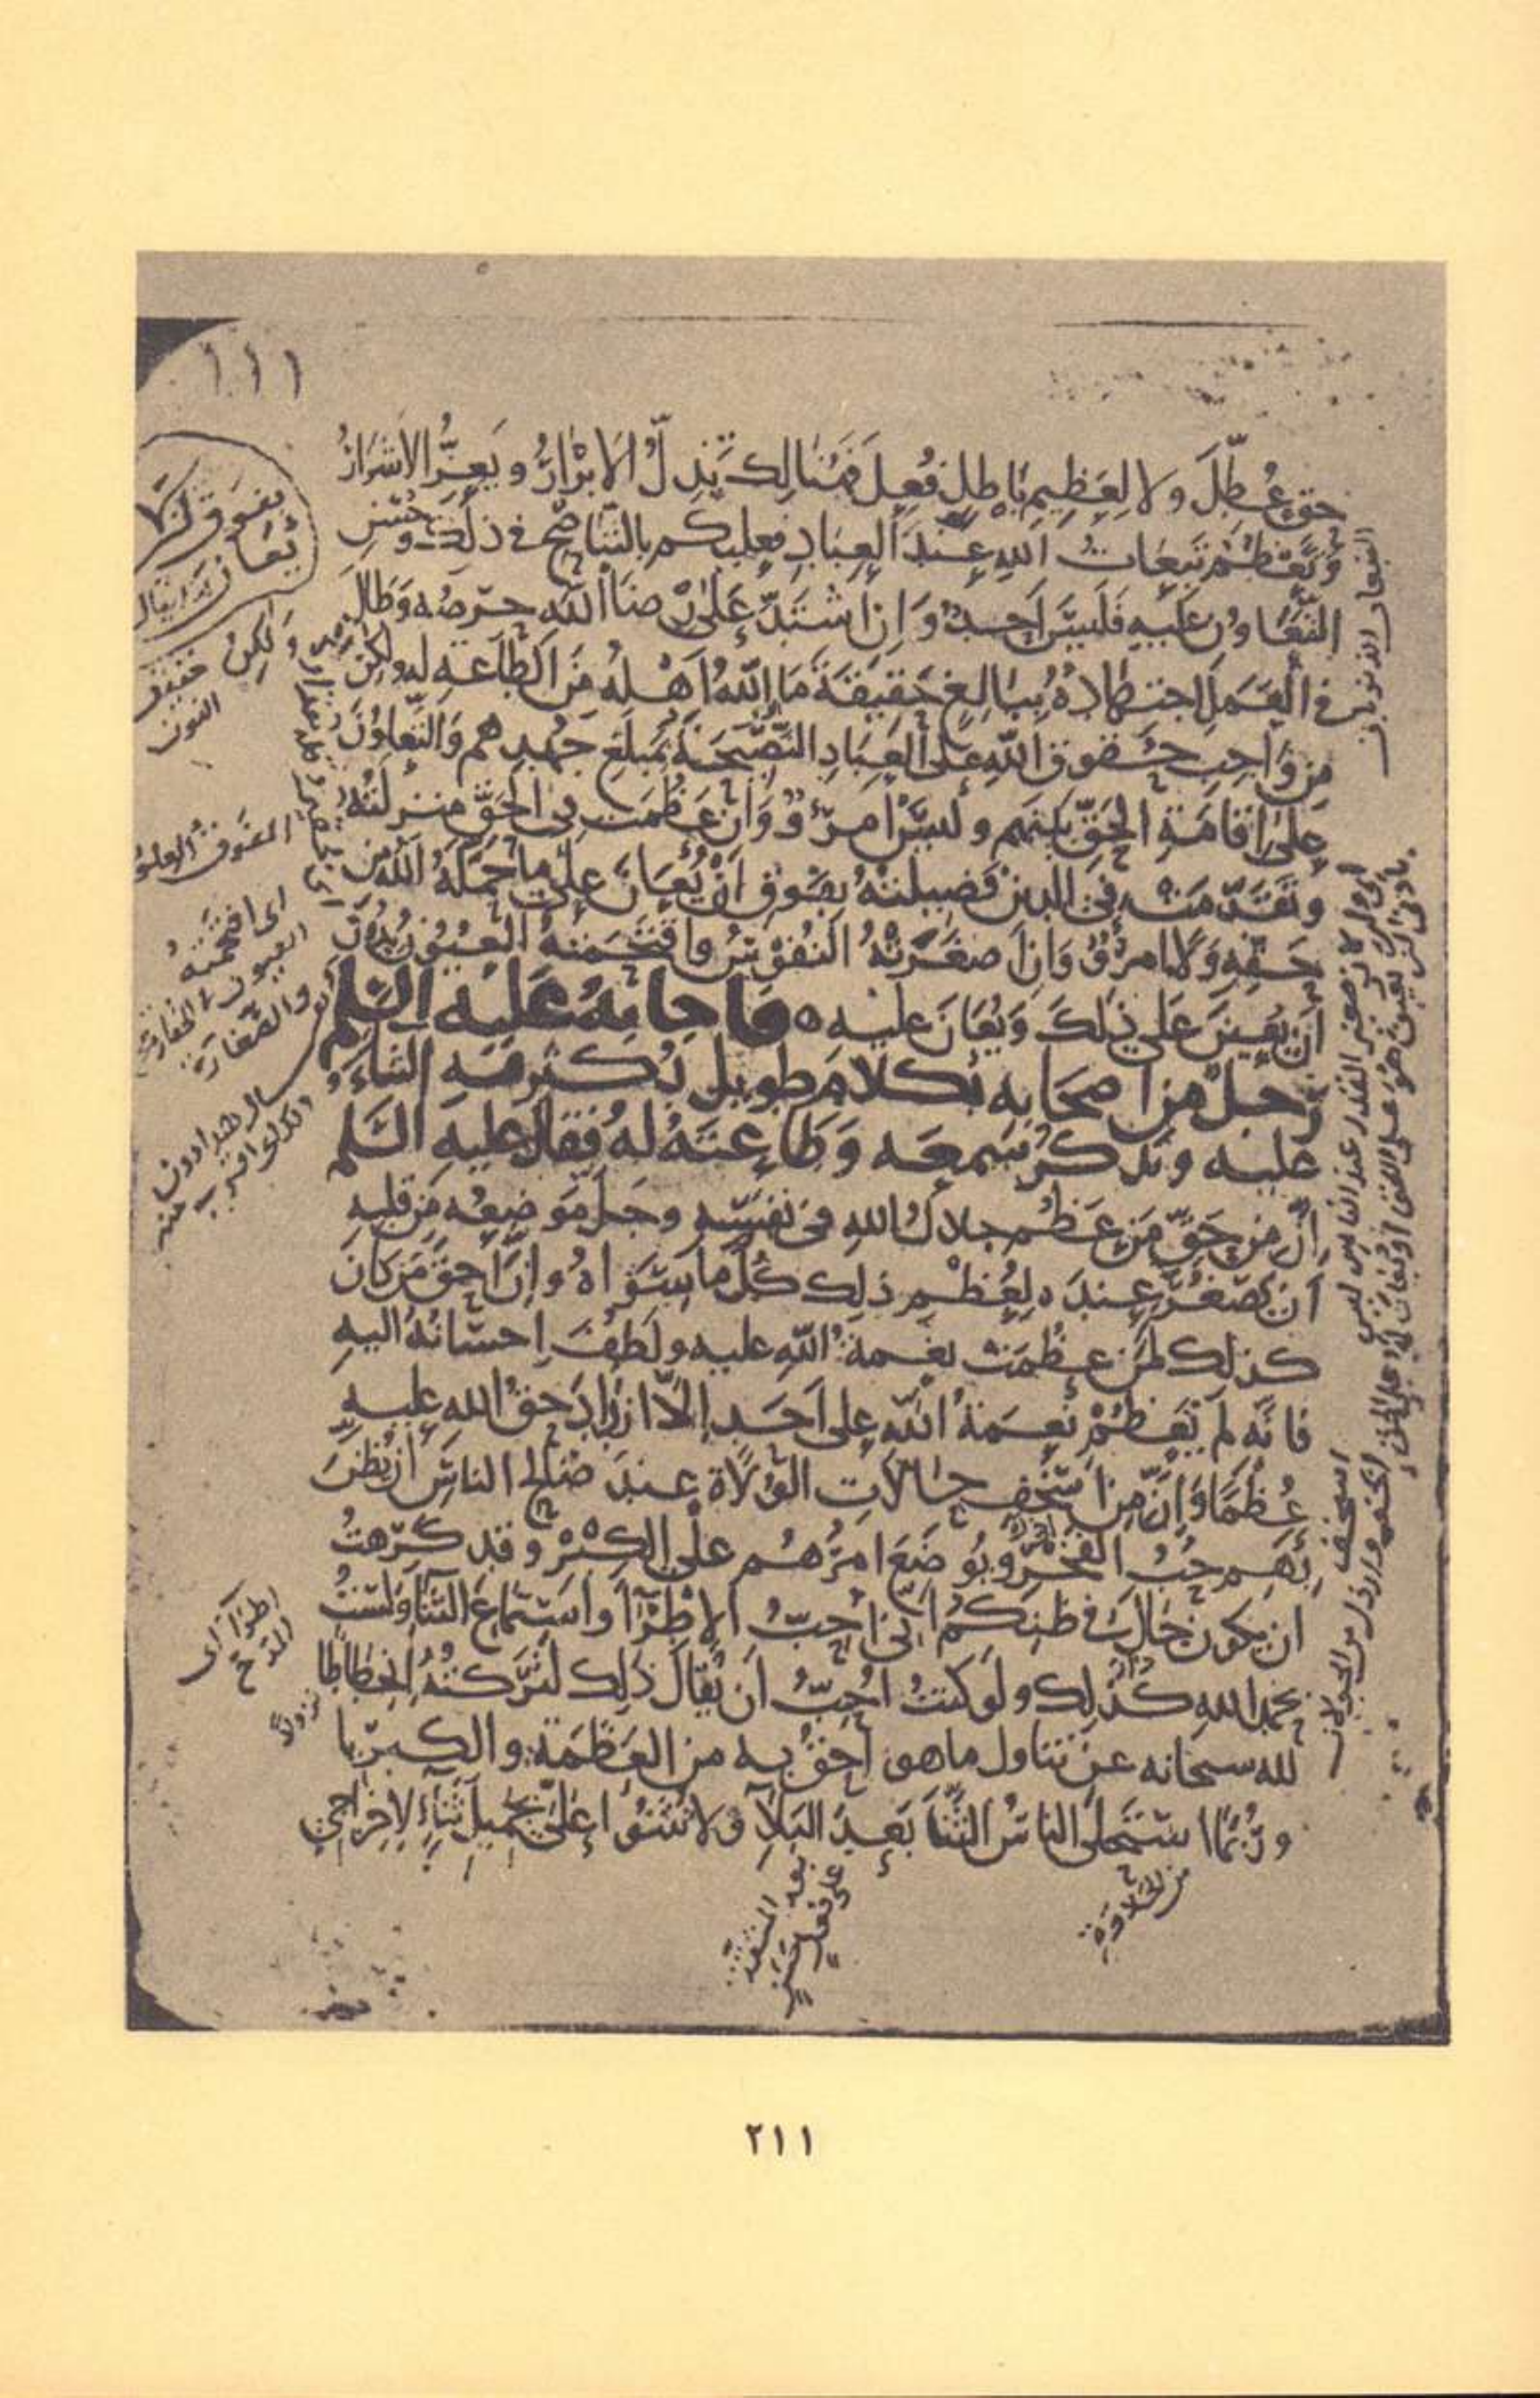 ١١١
حق عُطِّلَ ولا لعَظِيمِ بَاطِلٍ فُعِلَ فهُنَالِكَ تَذِلُّ الابْرَارُ وَيَعِزُّ الاشْرَارُ
وَتَعْظُمُ تَبِعَاتُ اللهِ عِنْدَ العِبَادِ فعليكم بالتَّنَاصُحِ في ذلِكَ وحُسْنِ
التَّعَاوُنِ عَلَيْهِ فَلَيْسَ اَحَدٌ وَاِنِ اشْتَدَّ عَلَى رِضَا اللهِ حِرْصُه وَطَالَ
في العَمَلِ اجتهَادُهُ بِبَالِغٍ حَقِيقَةَ مَا اللهُ اَهْلُهُ مِنَ الطَّاعَةِ له ولكن
مِن وَاجِبِ حُقوقِ اللهِ على العِبَادِ النَّصِيحَةُ بمَبْلَغِ جُهْدِهم وَالتَّعَاوُنُ
عَلى اِقامَةِ الحَقِّ بينهم وليْسَ امرُؤٌ وَاِنْ عَظُمَتْ فِي الحَقِّ منزلَتُهُ
وتَقَدَّمَتْ في الدين فَضِيلَتُهُ بِفَوْقِ اَنْ يُعَانَ عَلَى مَا حَمَّلَهُ اللهُ مِن
حَقِّهِ وَلا امرُؤٌ وَاِنْ صَغَّرَتْهُ النُفُوسُ واقتَحَمَتْهُ العُيُونُ بِدُونِ
اَنْ يُعِينَ عَلى ذلِكَ وَيُعَانَ عليه ه فاجابهُ عَلَيْه السَّلم
رَجُلٌ مِن اصحَابِه بكلامٍ طويلٍ يُكْثِرُ فيه الثناءَ
عليه ويَذكُرُ سَمْعَه وَطَاعَتَهُ لهُ فقالَ عليه السَّلم
اِنَّ مِن حَقِّ مَن عَظُمَ جلالُ اللهِ في نَفسِه وجَلَّ مَوضِعُه مِن قلبِهِ
اَن يَصْغُرَ عِندَه لِعُظْمِ ذلِك كُلُّ مَا سِوَاهُ واِنَّ اَحَقَّ مَن كَانَ
كذلك لمَن عظُمَتْ نِعْمَةُ اللهِ عليه ولَطُفَ اِحسَانُهُ اليهِ
فاِنَّه لَم تَعْظُمْ نِعْمَةُ اللهِ على اَحَدٍ اِلاَّ ازْدَادَ حَقُّ اللهِ عليهِ
عُظْمًا وَاِنَّ مِن اَسْخَفِ حالاتِ الوُلاةِ عِندَ صَالحِ الناسِ اَنْ يُظَنَّ
بِهِم حُبُّ الفَخْرِ ويُوضَعَ امرُهُم على الكِبْرِ وقد كَرِهتُ
ان يكون جَالَ في ظَنِّكُم انِّي اُحِبُّ الاِطْرَآءَ وَاسْتِمَاعَ الثَّنَآءِ ولَسْتُ
بحمدِ اللهِ كذلِك ولَو كنتُ اُحِبُّ اَن يُقَالَ ذلِك لَتَرَكتُهُ انحِطَاطًا
لله سبحانه عن تناولِ ما هو اَحَقُّ به من العَظَمَةِ والكِبرِيا
ورُبَّمَا اسْتَحلى الناسُ الثَّنَا بَعدَ البَلآءِ ولا تُثْنُوا عَلَيَّ بجَمِيلِ ثَنَآءٍ لِاِخرَاجِي
بفوق
يُعَان
ولكِنْ خفيف
النون
اى اقتحمته
العيون
اطرآ اى
المدح
نزولاً
من الحلاوَة
٢١١